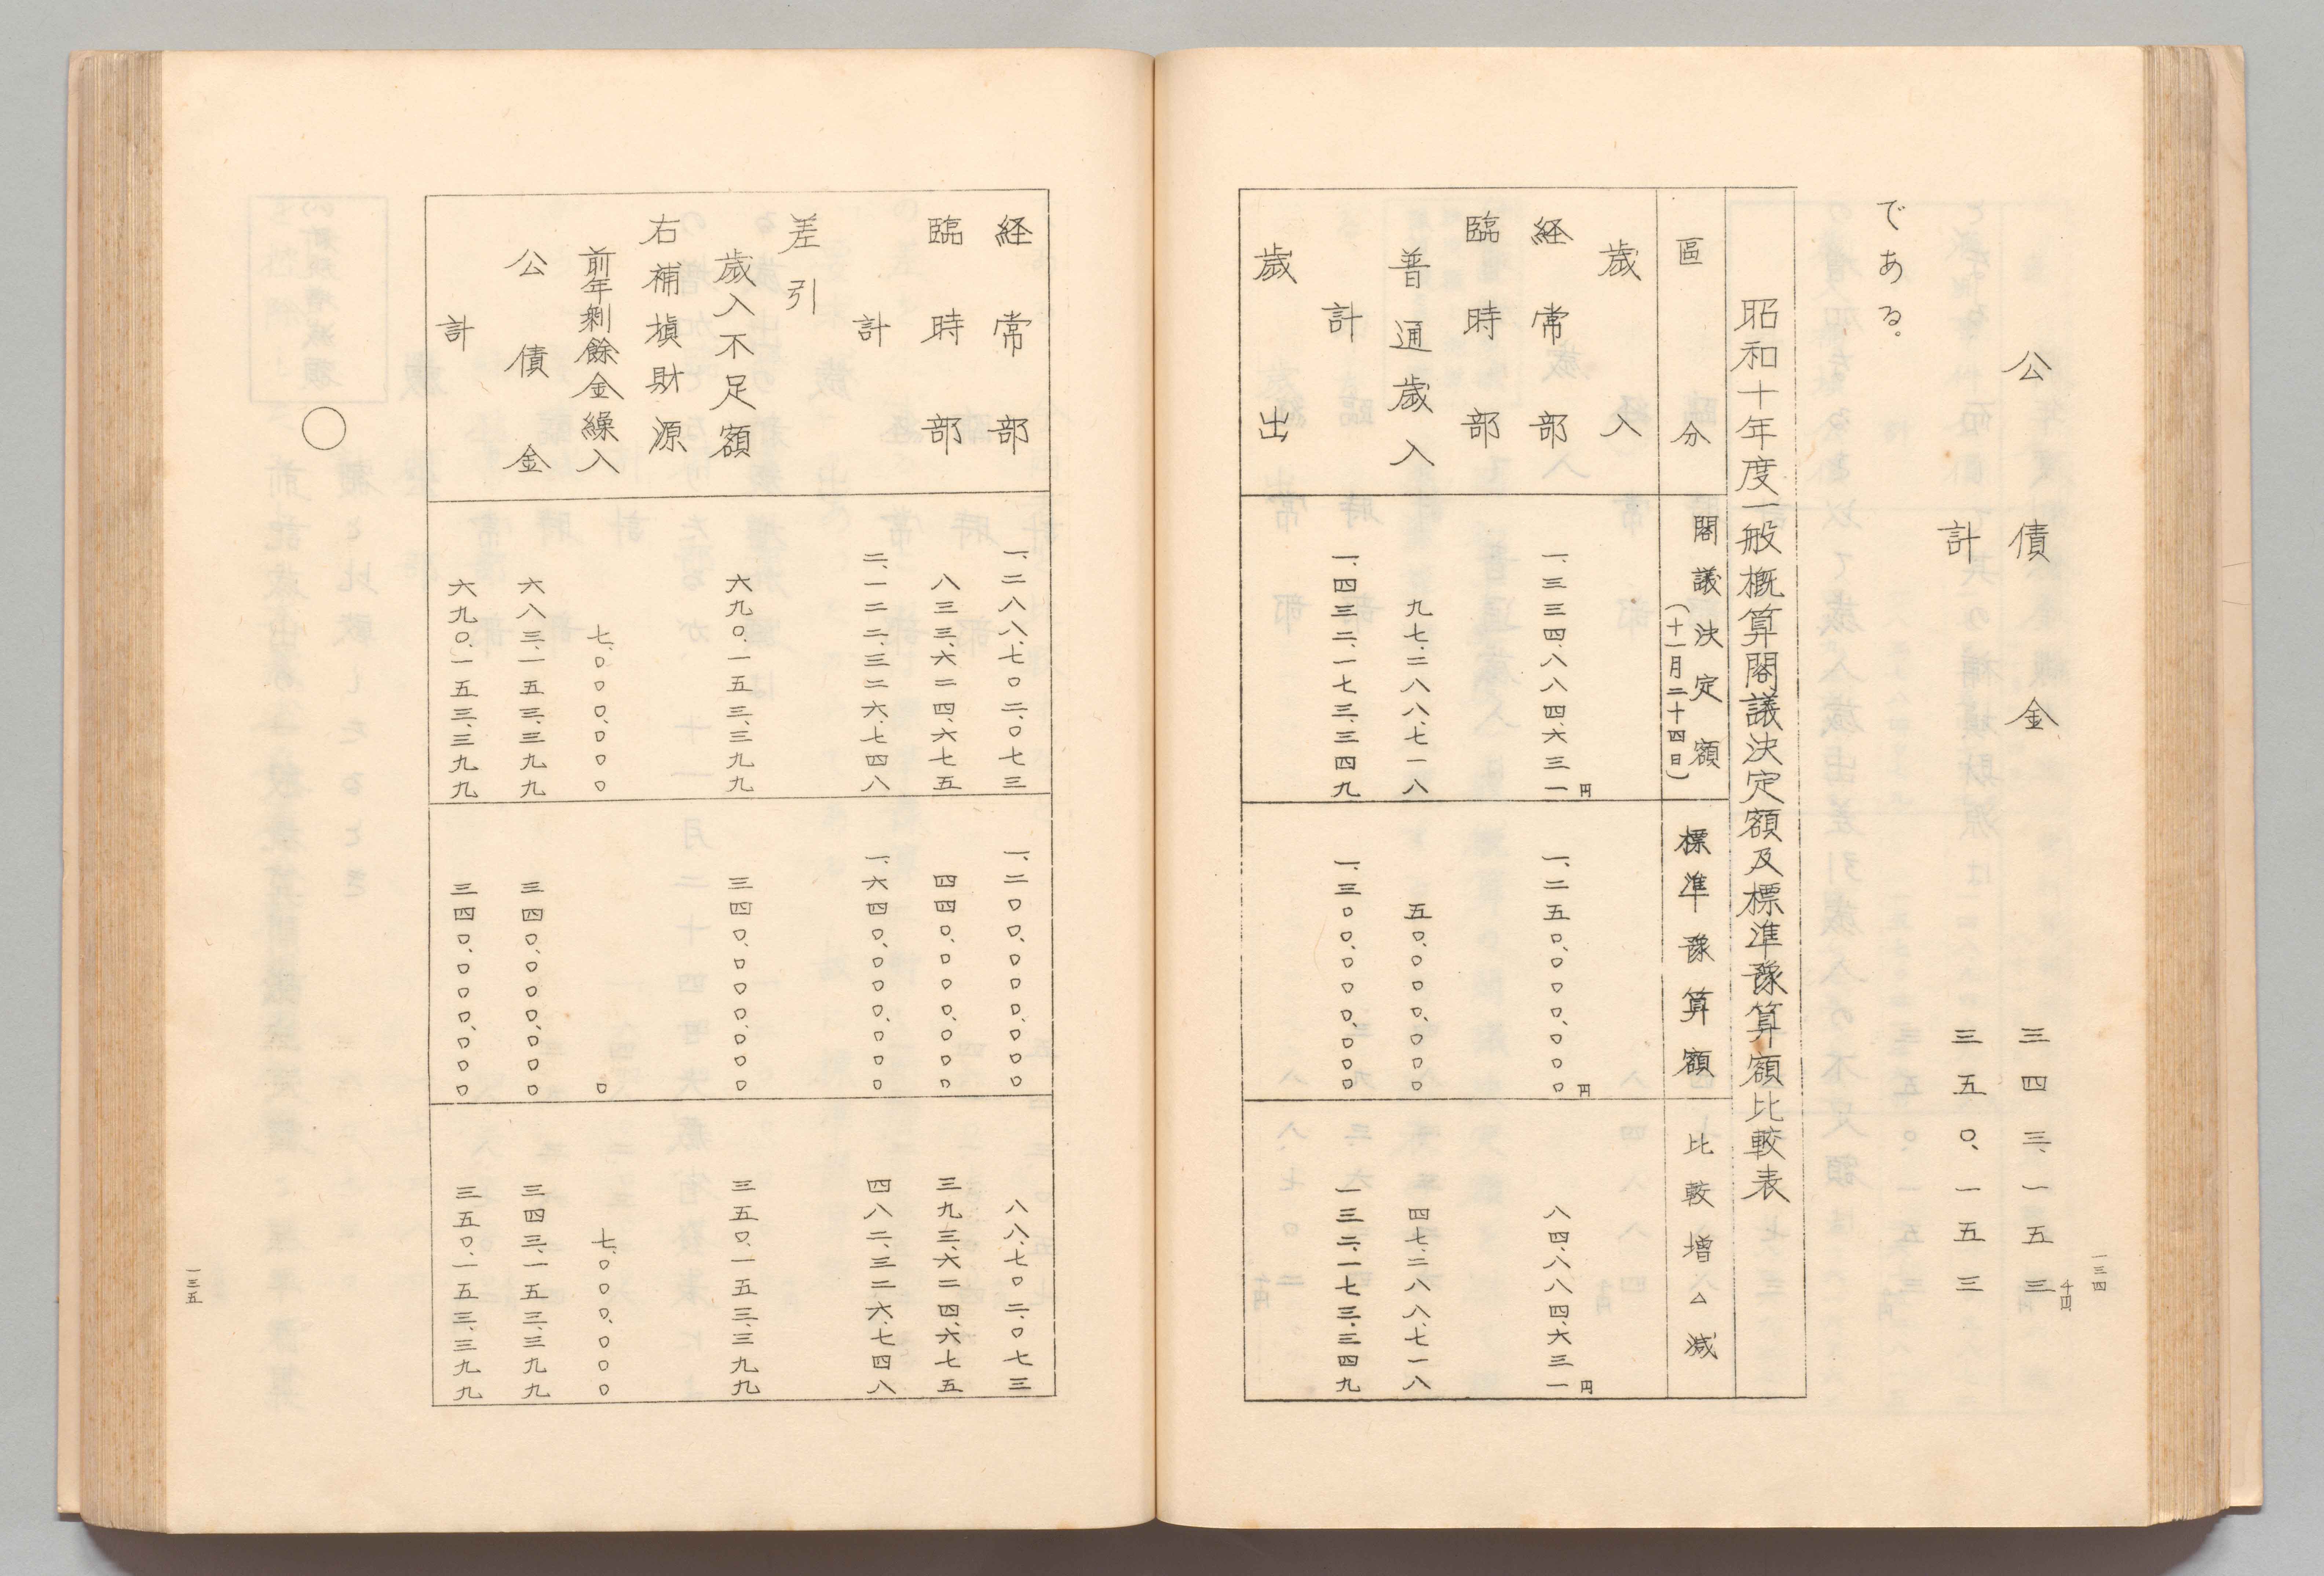 一三四
公債金 三四三、一五三千円
計 三五〇、一五三
である。
昭和十年度一般概算閣議決定額及標準豫算額比較表
區分 閣議決定額(十一月二十四日) 標準豫算額 比較増△減
歳入
経常部 一、三三四、八八四、六三一円 一、二五〇、〇〇〇、〇〇〇円 八四、八八四、六三一円
臨時部
普通歳入 九七、二八八、七一八 五〇、〇〇〇、〇〇〇 四七、二八八、七一八
計 一、四三二、一七三、三四九 一、三〇〇、〇〇〇、〇〇〇 一三二、一七三、三四九
歳出
経常部 一、二八八、七〇二、〇七三 一、二〇〇、〇〇〇、〇〇〇 八八、七〇二、〇七三
臨時部 八三三、六二四、六七五 四四〇、〇〇〇、〇〇〇 三九三、六二四、六七五
計 二、一二二、三二六、七四八 一、六四〇、〇〇〇、〇〇〇 四八二、三二六、七四八
差引
歳入不足額 六九〇、一五三、三九九 三四〇、〇〇〇、〇〇〇 三五〇、一五三、三九九
右補塡財源
前年剰餘金繰入 七、〇〇〇、〇〇〇 〇 七、〇〇〇、〇〇〇
公債金 六八三、一五三、三九九 三四〇、〇〇〇、〇〇〇 三四三、一五三、三九九
計 六九〇、一五三、三九九 三四〇、〇〇〇、〇〇〇 三五〇、一五三、三九九
〇
一三五